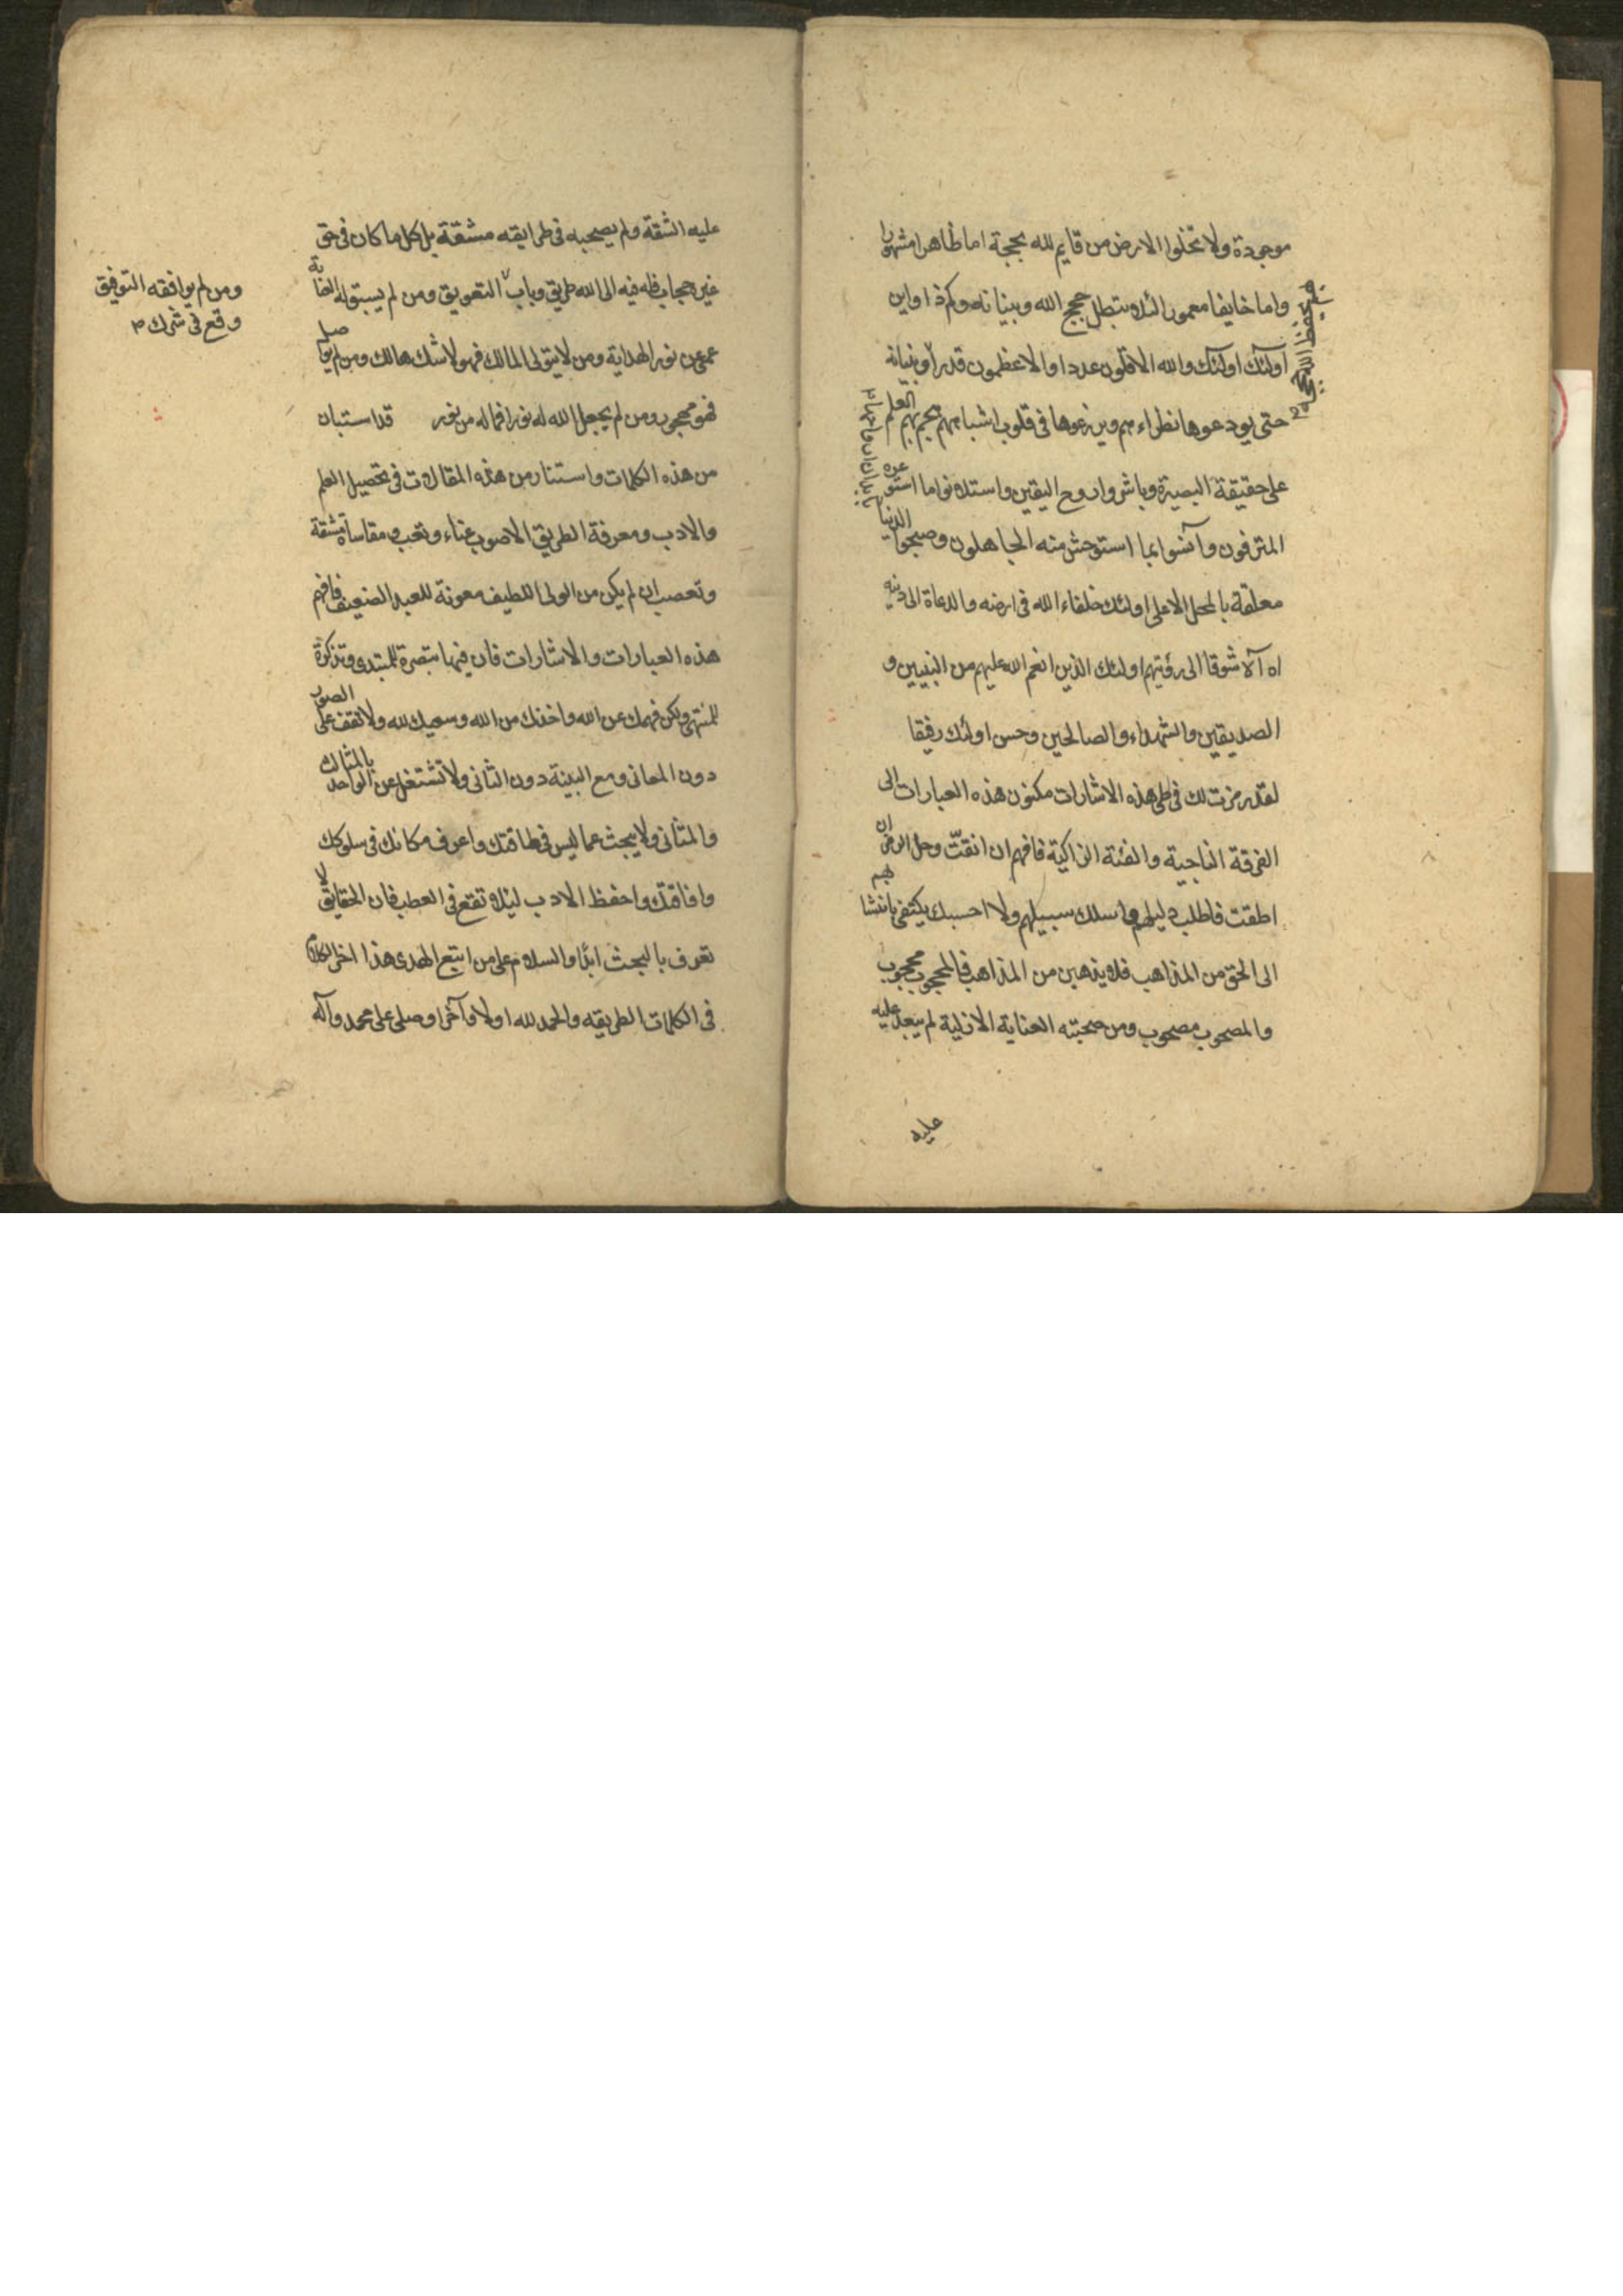 موجودة ولا تخلوا الارض من قايم لله بحجة اما ظاهرا مشهورا
واما خايفا مغمورا لئلا يبطل حجج الله وبيناته وكم ذا واين
اولئك اولئك والله الاقلون عددا والاعظمون قدرا وبنيانه
بهم يحفظ الله حججه
حتى يودعوها نظراءهم ويزرعوها في قلوب اشباههم هجم بهم العلم
على حقيقة البصيرة وباشروا روح اليقين واستلانوا ما استوعره
المترفون وآنسوا بما استوحش منه الجاهلون وصحبوا الدنيا
معلقة بالمحل الاعلى اولئك خلفاء الله في ارضه والدعاة الى دينه
اه آلا شوقا الى رؤيتهم اولئك الذين انعم الله عليهم من النبيين و
الصديقين والشهداء والصالحين وحسن اولئك رفيقا
لقد رمزت لك في طي هذه الاشارات مكنون هذه العبارات الى
الفرقة الناجية والفئة الزاكية فافهم ان انقتّ وحل الرمز ان
اطقت فاطلب دليلهم واسلك سبيلهم ولا احسبك يكتفي بانتسابهم
الى الحق من المذاهب فلا يذهبن من المذاهب فالمحجوب محجوب
والمصحوب مصحوب ومن صحبته العناية الازلية لم يبعد عليه
عليه
عليه الشقة ولم يصحبه في طرايقه مشقة بل كل ما كان في حق
غيره حجاب فله فيه الى الله طريق وباب التعويق ومن لم يستوله العناية
ومن لم يوافقه التوفيق
وقع في شرك
عمي عن نور الهداية ومن لا يتولى المالك فهو لا شك هالك ومن لم يواصل
فهو محجوب ومن لم يجعل الله له نورا فما له من نور قد استبان
من هذه الكلمات واستنار من هذه المقالات في تحصيل العلم
والادب ومعرفة الطريق الاصوب عناء وتعب ومقاساة مشقة
وتعصب ان لم يكن من الولى اللطيف معونة للعبد الضعيف فافهم
هذه العبارات والاشارات فان فيها تبصرة للمبتدي وتذكرة
للمنتهي ولكن فهمك عن الله واخذك من الله وسعيك لله ولا تقف على الصور
دون المعاني ومع البينة دون الثاني ولا تشتغل عن الواحد بالمثالث
والمثاني ولا يبحث عما ليس في طاقتك واعرف مكانك في سلوكك
وافاقتك واحفظ الادب لئلا تقع في العطب فان الحقايق لا
تعرف بالبحث ابدا والسلام على من اتبع الهدى هذا اخر الكلام
في الكلمات الطريقه والحمد لله اولا وآخرا وصلى على محمد وآله